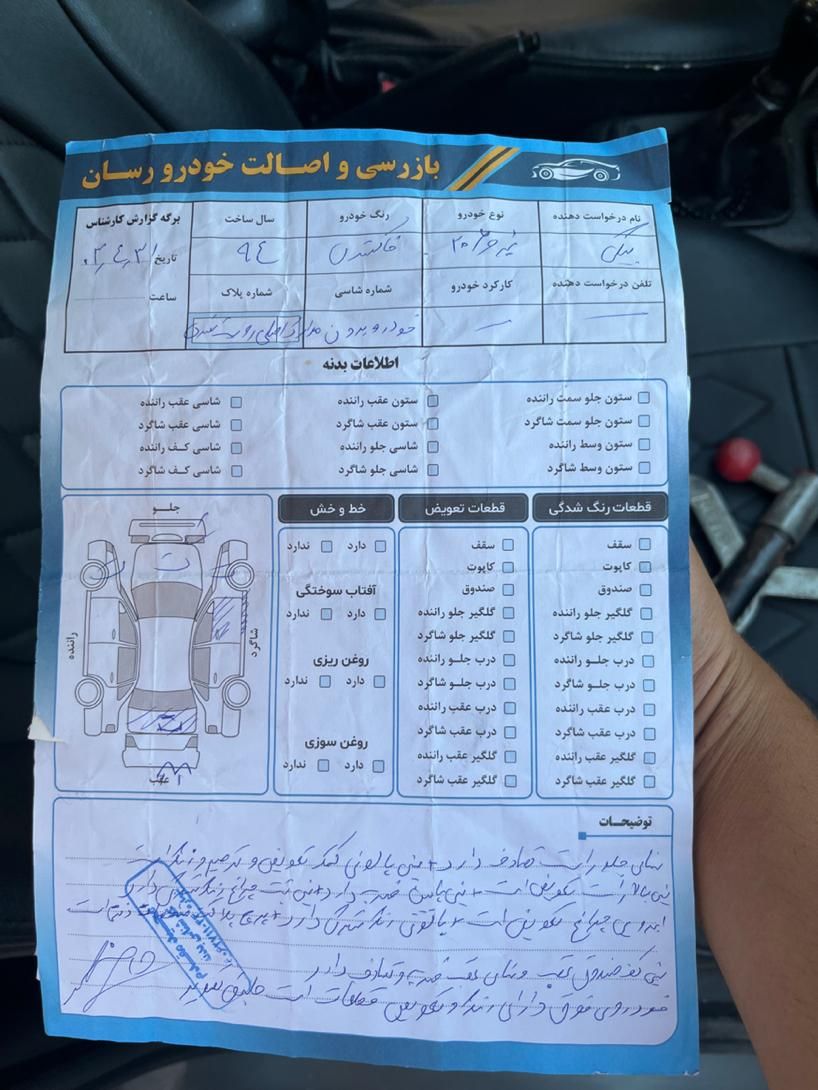 بازرسی و اصالت خودرو رسان
نام درخواست دهنده
نوع خودرو
رنگ خودرو
سال ساخت
برگه گزارش کارشناس
بیگی
خاکستری
۹۴
تاریخ ۳۱، ۴، ۳
تلفن درخواست دهنده
کارکرد خودرو
شماره شاسی
شماره پلاک
ساعت
خودرو بدون مدارک اصلی رویت شده
اطلاعات بدنه
ستون جلو سمت راننده
ستون عقب راننده
شاسی عقب راننده
ستون جلو سمت شاگرد
ستون عقب شاگرد
شاسی عقب شاگرد
ستون وسط راننده
شاسی جلو راننده
شاسی کف راننده
ستون وسط شاگرد
شاسی جلو شاگرد
شاسی کف شاگرد
قطعات رنگ شدگی
سقف
کاپوت
صندوق
گلگیر جلو راننده
گلگیر جلو شاگرد
درب جلو راننده
درب جلو شاگرد
درب عقب راننده
درب عقب شاگرد
گلگیر عقب راننده
گلگیر عقب شاگرد
قطعات تعویض
سقف
کاپوت
صندوق
گلگیر جلو راننده
گلگیر جلو شاگرد
درب جلو راننده
درب جلو شاگرد
درب عقب راننده
درب عقب شاگرد
گلگیر عقب راننده
گلگیر عقب شاگرد
خط و خش
دارد
ندارد
آفتاب سوختگی
دارد
ندارد
روغن ریزی
دارد
ندارد
روغن سوزی
دارد
ندارد
جلو
ت
راننده
شاگرد
عقب
توضیحات
جلو راست تصادف دارد + سینی پالونی کمک تعویض و ترمیم و رنگ است
بالا راست تعویض است + سینی پایین ضربه دارد + سینی پشت چراغ
ابرویی چراغ تعویض است + رنگ شدگی دارد است
سینی کف صندوق عقب و عقب ضربه و تصادف دارد
خودروی فوق دارای رنگ و تعویض قطعات است